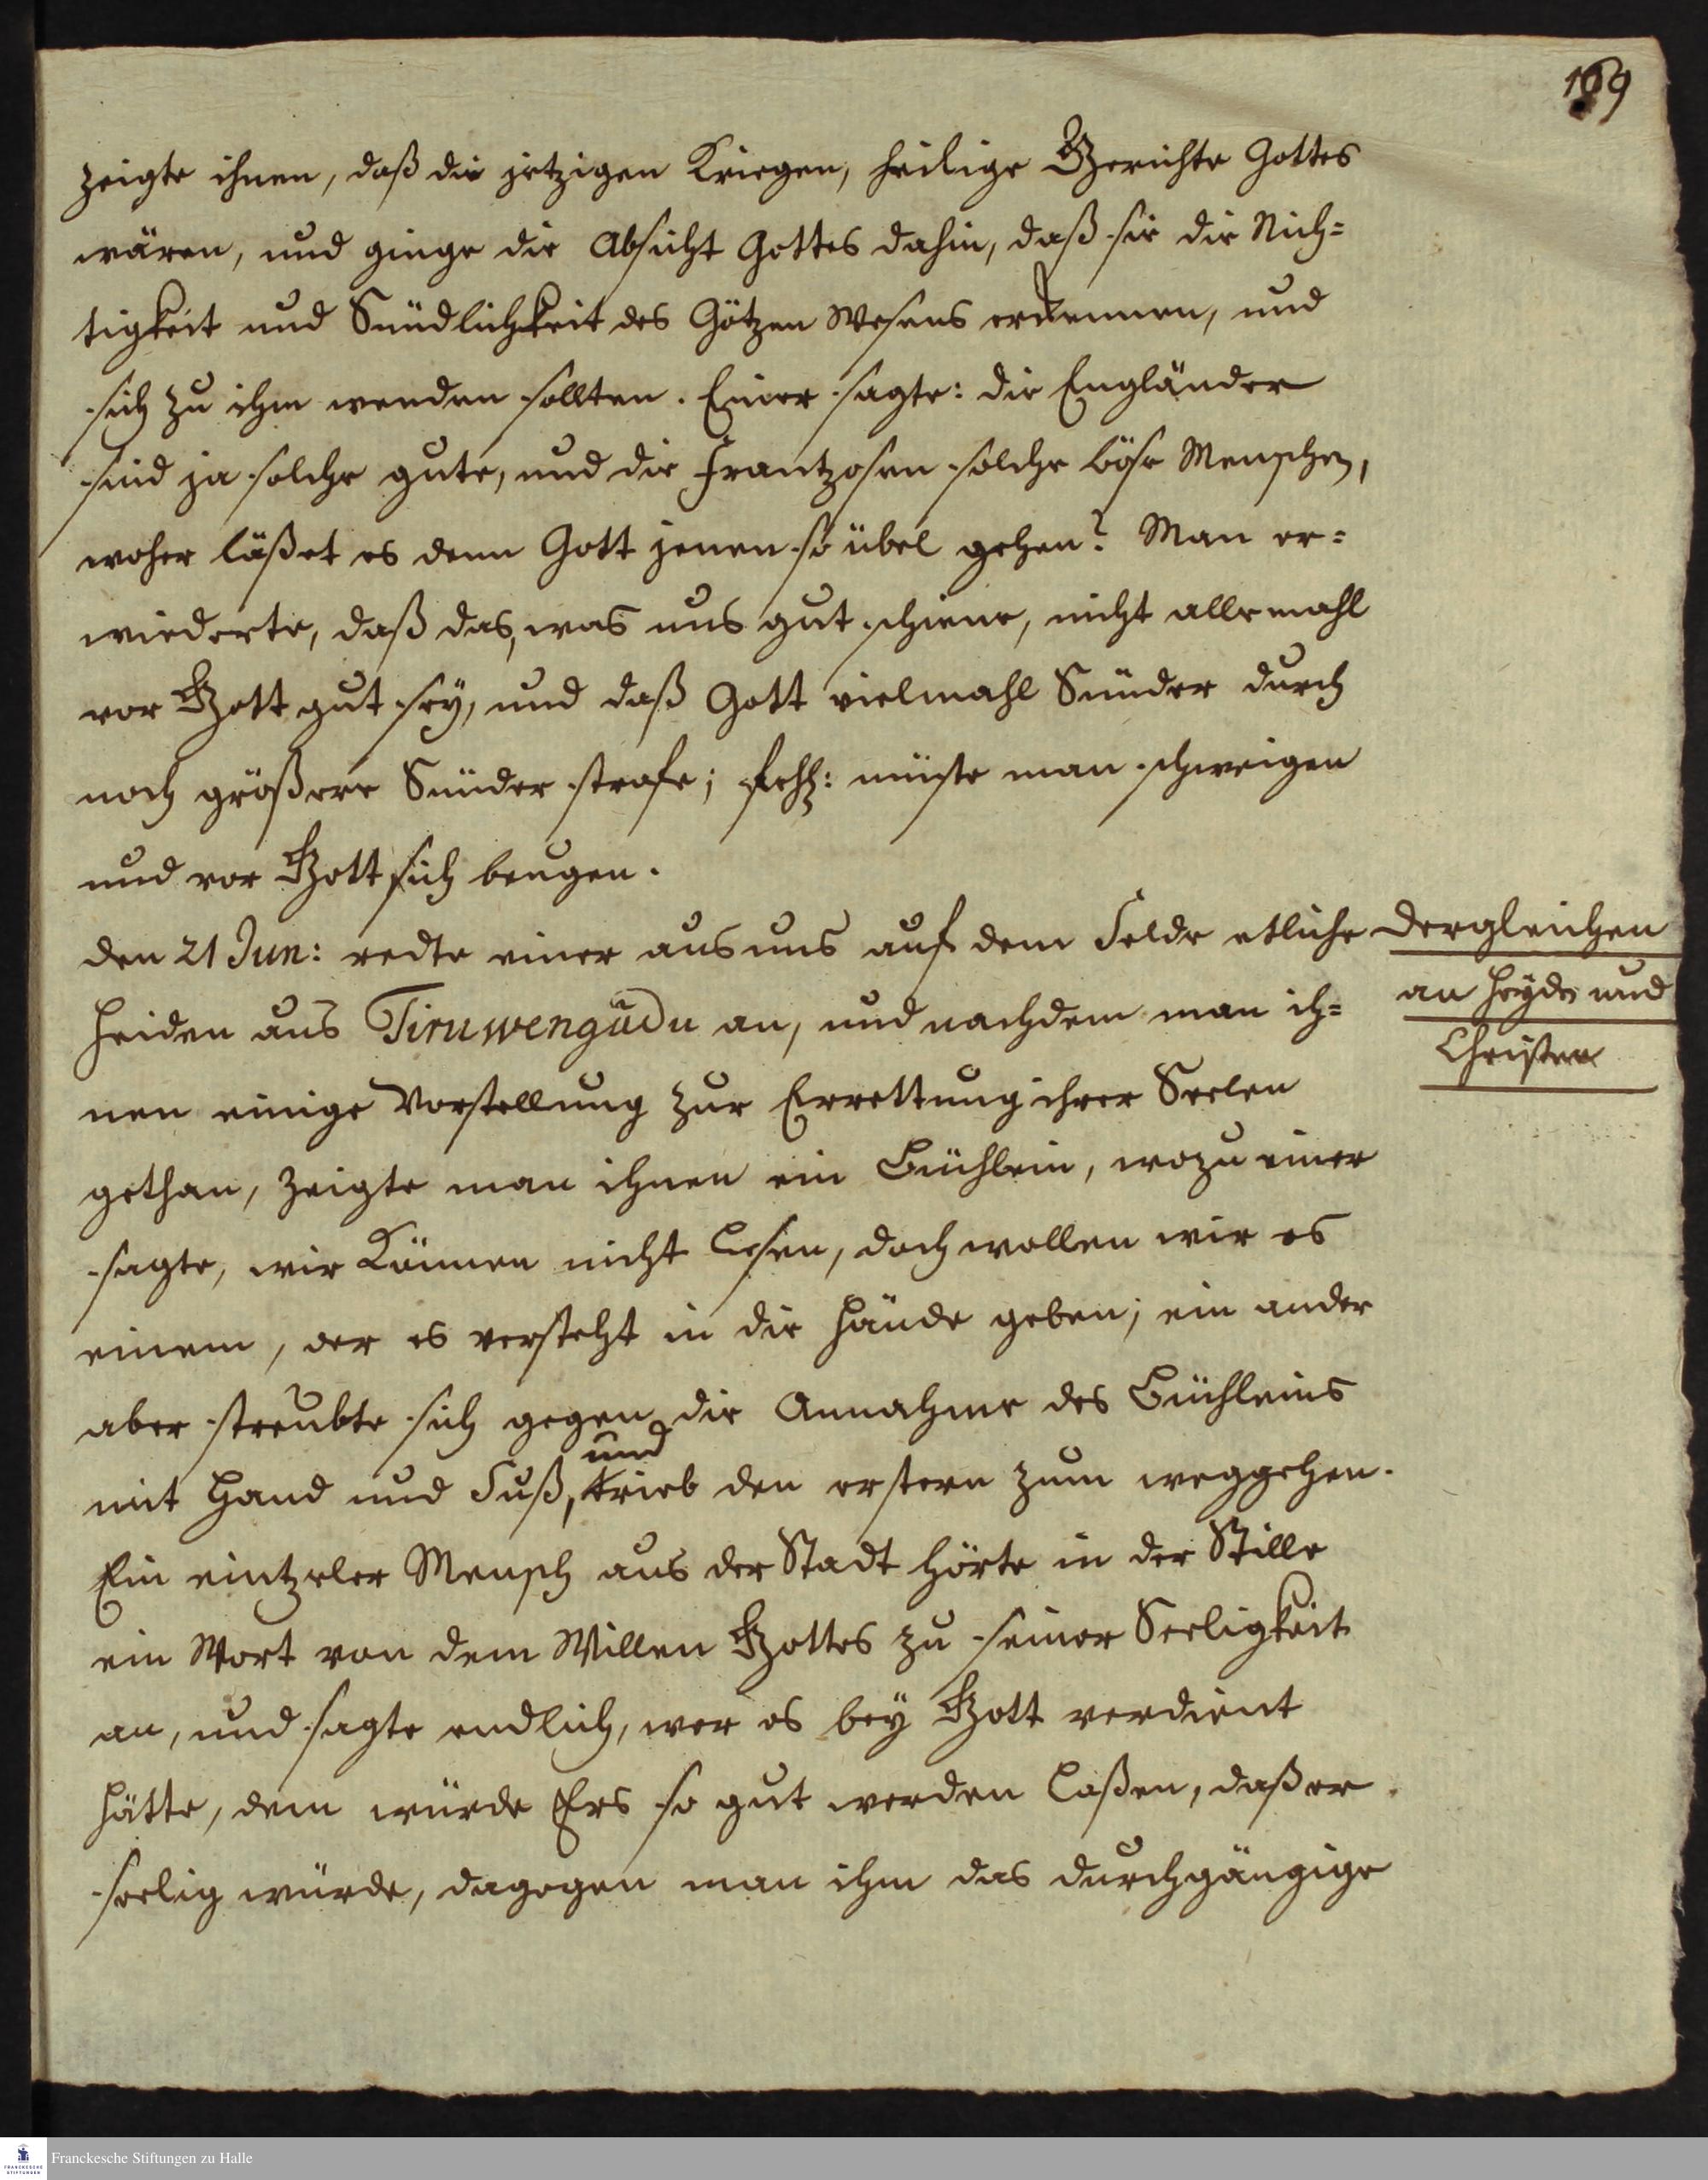 169
zeigte ihnen, daß die jetzigen Kriegen, heilige Gerichte Gottes
wären, und ginge die Absicht Gottes dahin, daß sie die Nich=
tigkeit und Sündlichkeit des Götzen Wesens erkennen, und
sich zu ihm wenden sollten. Einer sagte: die Engländer
sind ja solche gute, und die Frantzosen solche böse Menschen,
woher läßet es denn Gott jenen so übel gehen? Man er=
wiederte, daß das, was uns gut schiene, nicht allemahl
vor Gott gut sey, und daß Gott vielmahl Sünder durch
noch größere Sünder strafe; müste man schweigen
und vor Gott sich beugen.
den 21 Jun: redte einer aus uns auf dem Felde etliche
Heiden aus Tiruwengādu an, und nachdem man ih=
nen einige Vorstellung zur Errettung ihrer Seelen
gethan, zeigte man ihnen ein Büchlein, wozu einer
sagte, wir können nicht lesen, doch wollen wir es
einem, der es versteht in die Hände geben; ein ander
aber streubte sich gegen die Annahme des Büchleins
mit Hand und Fuß, und trieb den erstern zum weggehen.
Ein eintzeler Mensch aus der Stadt hörte in der Stille
ein Wort von dem Willen Gottes zu seiner Seeligkeit
an, und sagte endlich, wer es bey Gott verdient
hätte, dem würde Ers so gut werden laßen, daß er
seelig würde, dagegen man ihm das durchgängige
dergleichen
an Heyden und
Christen
Franckesche Stiftungen zu Halle